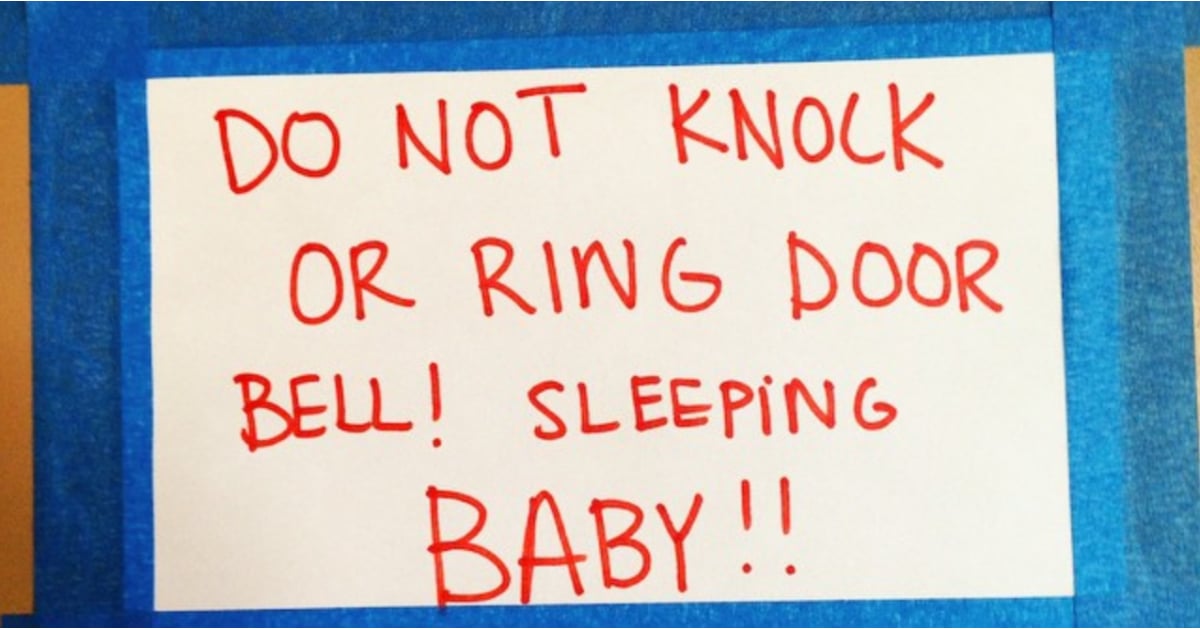 DO NOT KNOCK
OR RING DOOR
BELL! SLEEPiNG
BABY!!